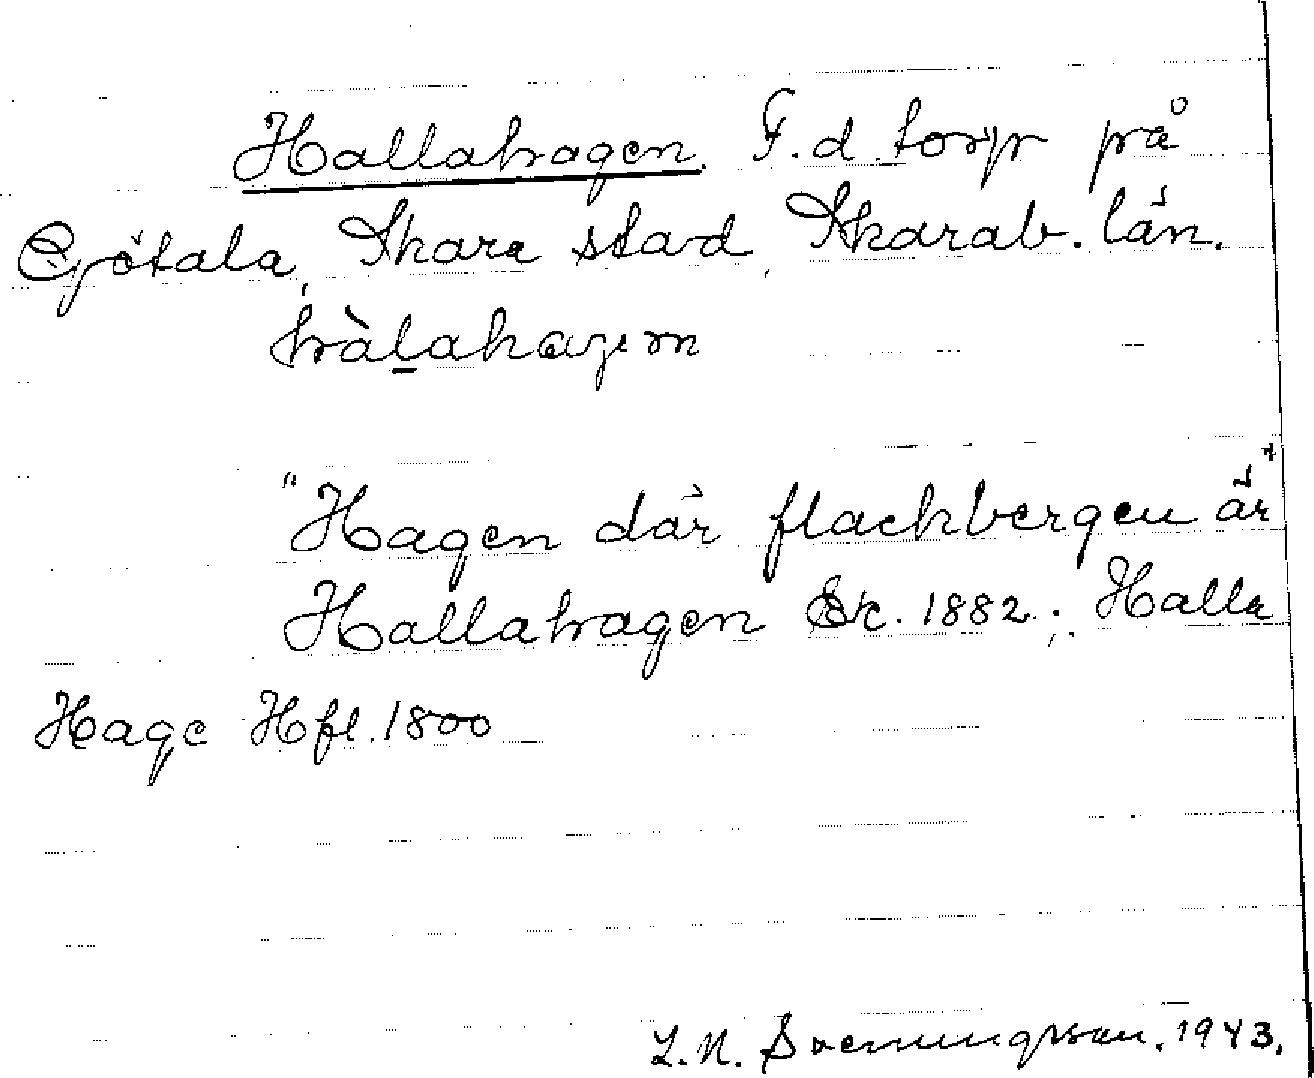 Hallahagen. F.d. torp på
Götala, Skara stad, Skarab. län.
hàlahagen
"Hagen där flackbergen är"
Hallahagen Ek. 1882; Halla
Hage Hfl. 1800
L.N. Svenningsson. 1943.